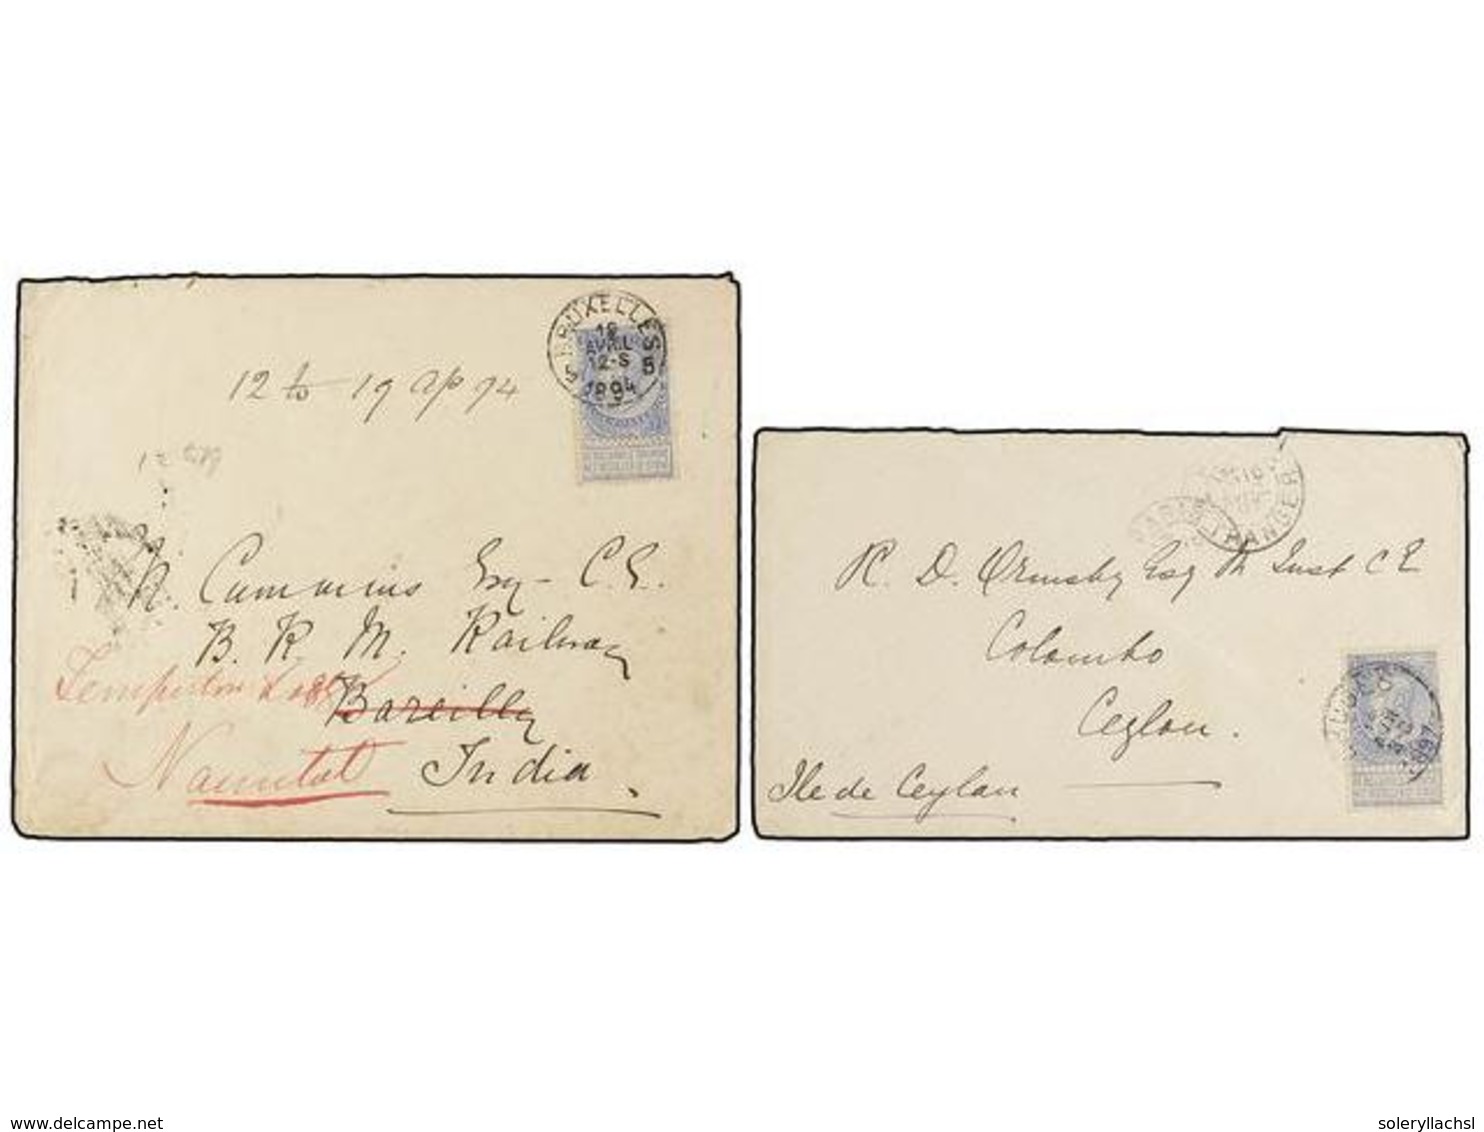 BRUXELLES
5 5
AVRIL
12-S
1894
12 to 19 Ap 94
N. Cummins Esq - C.E.
B. K M. Railway
Bareilly
Naintal
India
PARIS
ETRANGER
R. D. Ormsby Esq M Inst C E
Colombo
Ceylon.
Ile de Ceylan
1897
www.delcampe.net
soleryllachsl